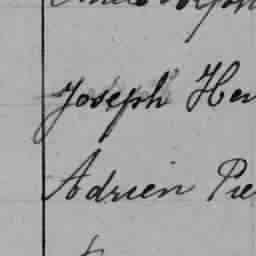 Joseph Hen
Adrien Pie